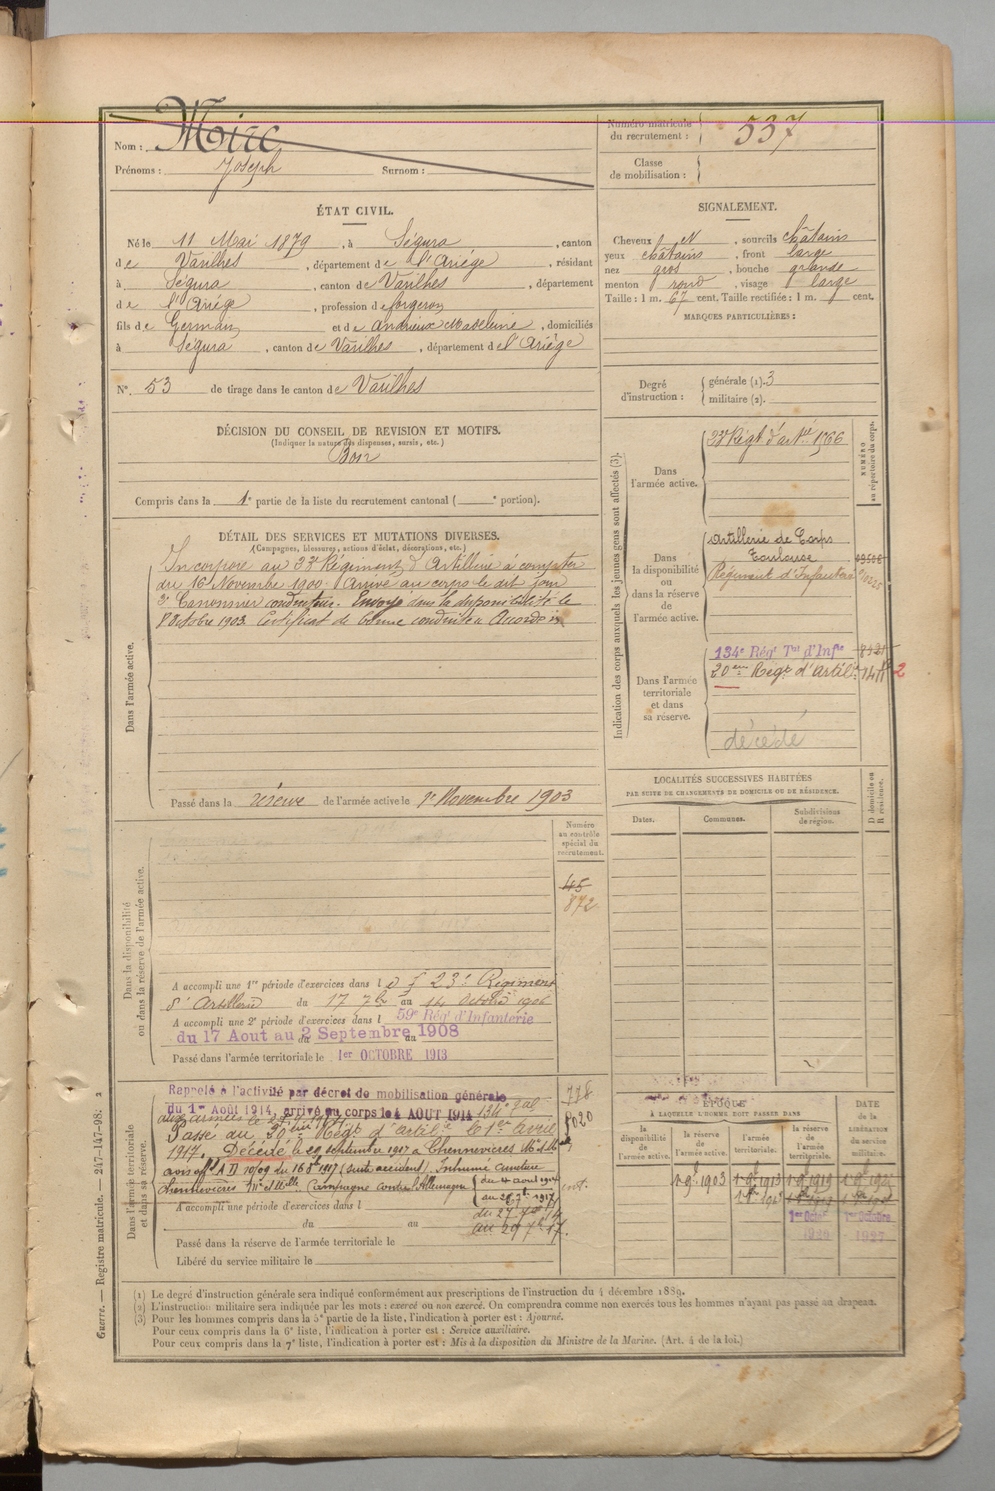 Nom : Moirc
Prénoms : Joseph Surnom :
Numéro matricule du recrutement : 537
Classe de mobilisation :
ÉTAT CIVIL.
Né le 11 Mai 1879, à Ségura, canton
de Varilhes, département de l'Ariége, résidant
à Ségura, canton de Varilhes, département
de l'Ariége, profession de forgeron
fils de Germain et de Andrieux Madeleine, domiciliés
à Ségura, canton de Varilhes, département de l'Ariége
N°. 53 de tirage dans le canton de Varilhes
SIGNALEMENT.
Cheveux et N, sourcils châtains
yeux châtains, front large
nez gros, bouche grande
menton rond, visage large
Taille : 1 m. 67 cent. Taille rectifiée : 1 m. cent.
MARQUES PARTICULIÈRES :
Degré d'instruction : générale (1). 3
militaire (2).
DÉCISION DU CONSEIL DE REVISION ET MOTIFS.
(Indiquer la nature des dispenses, sursis, etc.)
Bon
Compris dans la 1e partie de la liste du recrutement cantonal ( e portion).
DÉTAIL DES SERVICES ET MUTATIONS DIVERSES.
(Campagnes, blessures, actions d'éclat, décorations, etc.)
Dans l'armée active.
Incorporé au 23e Régiment d'Artillerie à compter
du 16 Novembre 1900. Arrivé au corps le dit jour
2e Cannonier conducteur. Envoyé dans la disponibilité le
8 Octobre 1903. Certificat de bonne conduite Accordé
Passé dans la réserve de l'armée active le 1er Novembre 1903
Indication des corps auxquels les jeunes gens sont affectés (3).
NUMÉRO au répertoire du corps.
Dans l'armée active.
23e Régt d'artie 1366
Dans la disponibilité ou dans la réserve de l'armée active.
Artillerie de Corps
Toulouse
Régiment d'Infanterie
Dans l'armée territoriale et dans sa réserve.
134e Régt Tal d'Infie
20eme Régt d'artil
2
décédé
LOCALITÉS SUCCESSIVES HABITÉES
PAR SUITE DE CHANGEMENTS DE DOMICILE OU DE RÉSIDENCE.
D domicile ou R résidence.
Dates. Communes. Subdivisions de région.
Dans la disponibilité ou dans la réserve de l'armée active.
Numéro au contrôle spécial du recrutement.
45
872
A accompli une 1re période d'exercices dans le 23e Régiment
d'Artillerie du 17 7bre au 14 Octobre 1906
A accompli une 2e période d'exercices dans l 59e Rég' d'Infanterie
du 17 Aout au 2 Septembre 1908
Passé dans l'armée territoriale le 1er OCTOBRE 1913
Dans l'armée territoriale et dans sa réserve.
Rappelé à l'activité par décret de mobilisation générale
du 1er Août 1914, arrivé au corps le 4 AOUT 1914 134e
Passé au 20eme Régt d'artilie le 1er avril
1917. Décédé le 29 septembre 1917 à Chennevières
avis offel A D 10/09 du 16 8bre 1917 (suite accident). Inhumé cimetière
Chennevières Campagne contre l'Allemagne du 4 aout 1914
au 29 7bre 1917
778
8020
A accompli une période d'exercices dans l
du au
Passé dans la réserve de l'armée territoriale le
Libéré du service militaire le
ÉPOQUE
À LAQUELLE L'HOMME DOIT PASSER DANS
DATE de la LIBÉRATION du service militaire.
la disponibilité de l'armée active. la réserve de l'armée active. l'armée territoriale. la réserve de l'armée territoriale.
1 9e 1903 1 9e 1913 1 9e 1919
1er Octobre 1927
(1) Le degré d'instruction générale sera indiqué conformément aux prescriptions de l'instruction du 4 décembre 1889.
(2) L'instruction militaire sera indiquée par les mots : exercé ou non exercé. On comprendra comme non exercés tous les hommes n'ayant pas passé au drapeau.
(3) Pour les hommes compris dans la 5e partie de la liste, l'indication à porter est : Ajourné.
Pour ceux compris dans la 6e liste, l'indication à porter est : Service auxiliaire.
Pour ceux compris dans la 7e liste, l'indication à porter est : Mis à la disposition du Ministre de la Marine. (Art. 4 de la loi.)
Guerre. — Registre matricule. — 247-147-98. 2